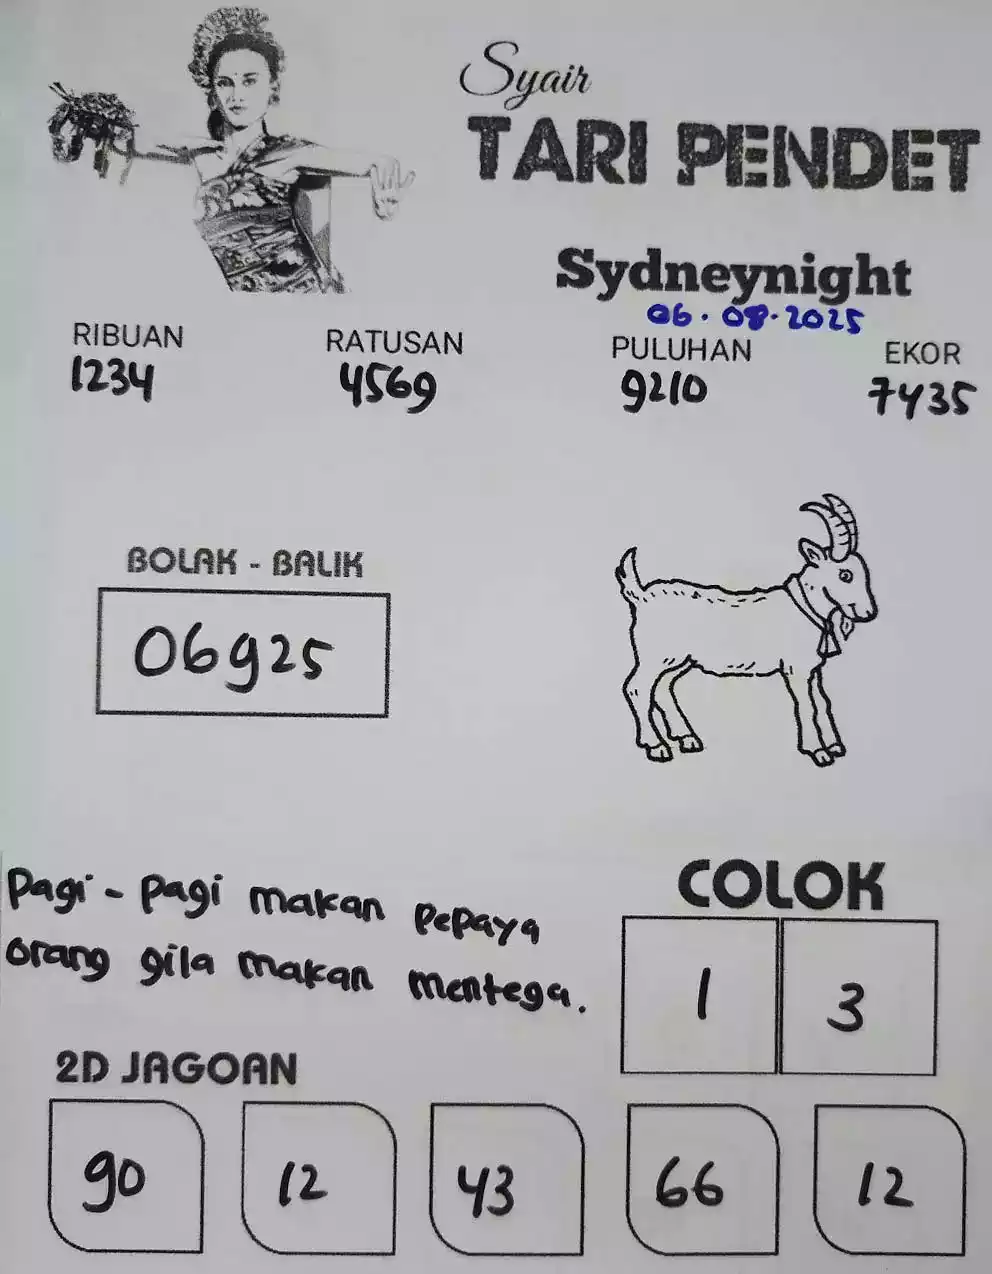 Syair
TARI PENDET
Sydneynight
06.08.2025
RIBUAN RATUSAN PULUHAN EKOR
1234 4569 9210 7435
BOLAK - BALIK
06925
Pagi - pagi makan pepaya
orang gila makan mentega.
COLOK
1 3
2D JAGOAN
90 12 43 66 12